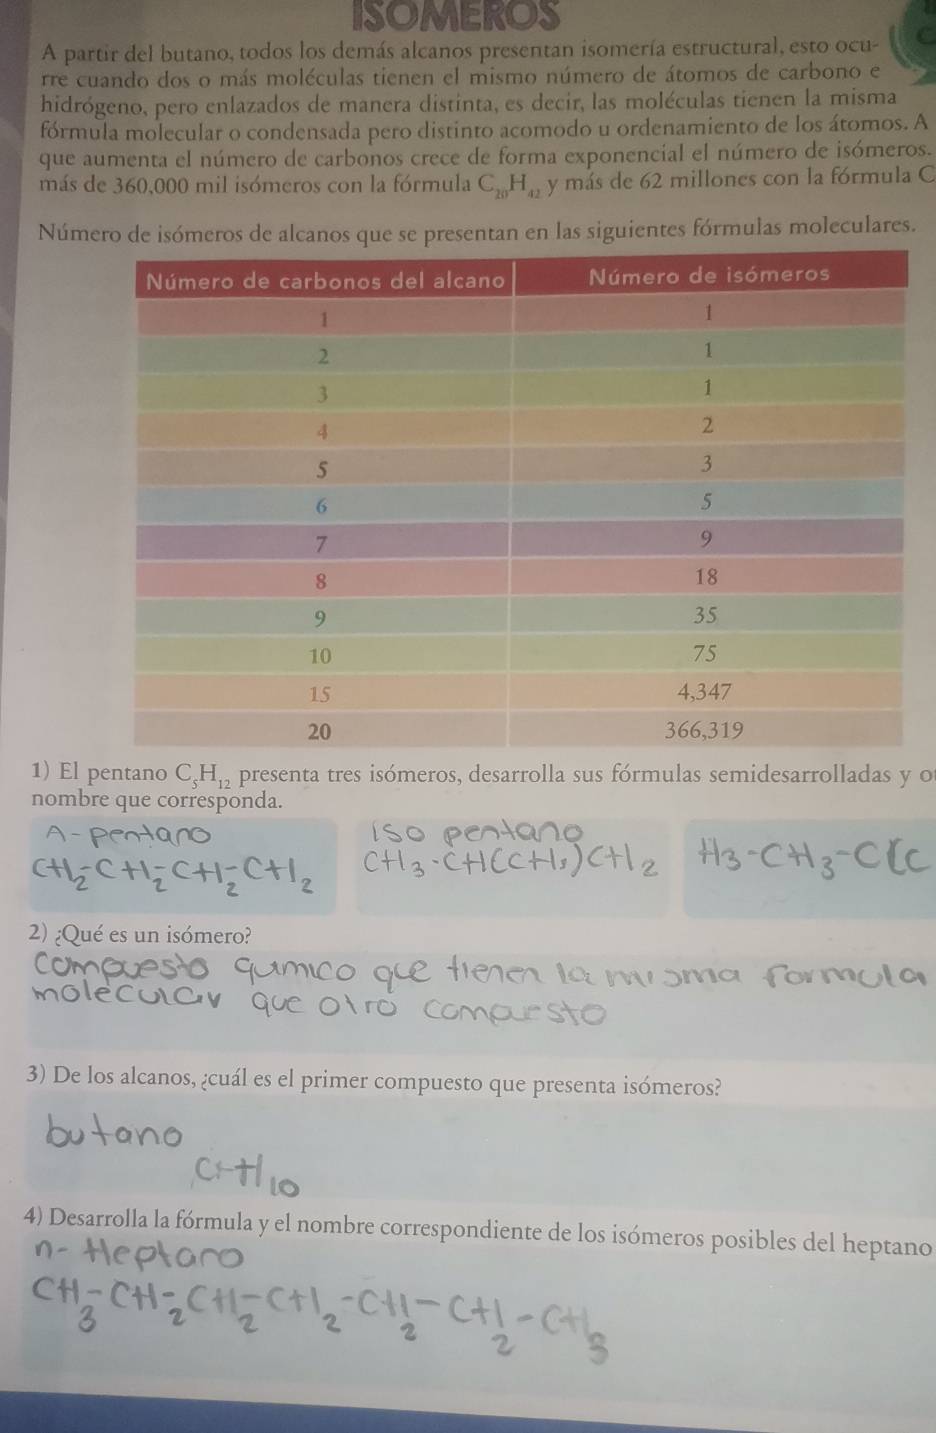 ISÓMEROS
A partir del butano, todos los demás alcanos presentan isomería estructural, esto ocu-
rre cuando dos o más moléculas tienen el mismo número de átomos de carbono e
hidrógeno, pero enlazados de manera distinta, es decir, las moléculas tienen la misma
fórmula molecular o condensada pero distinto acomodo u ordenamiento de los átomos. A
que aumenta el número de carbonos crece de forma exponencial el número de isómeros.
más de 360,000 mil isómeros con la fórmula C₂₀H₄₂ y más de 62 millones con la fórmula C
Número de isómeros de alcanos que se presentan en las siguientes fórmulas moleculares.
Número de carbonos del alcano Número de isómeros
1 1
2 1
3 1
4 2
5 3
6 5
7 9
8 18
9 35
10 75
15 4,347
20 366,319
1) El pentano C₅H₁₂ presenta tres isómeros, desarrolla sus fórmulas semidesarrolladas y o
nombre que corresponda.
A-pentano iso pentano
CH₂-CH₂-CH₂-CH₂ CH₃-CH(CH₃)CH₂ H3-CH₃-C(C
2) ¿Qué es un isómero?
compuesto qumico que tienen la misma formula
molecular que otro compuesto
3) De los alcanos, ¿cuál es el primer compuesto que presenta isómeros?
butano
H₁₀
4) Desarrolla la fórmula y el nombre correspondiente de los isómeros posibles del heptano
n-Heptano
CH₃-CH₂-CH₂-CH₂-CH₂-CH₂-CH₃